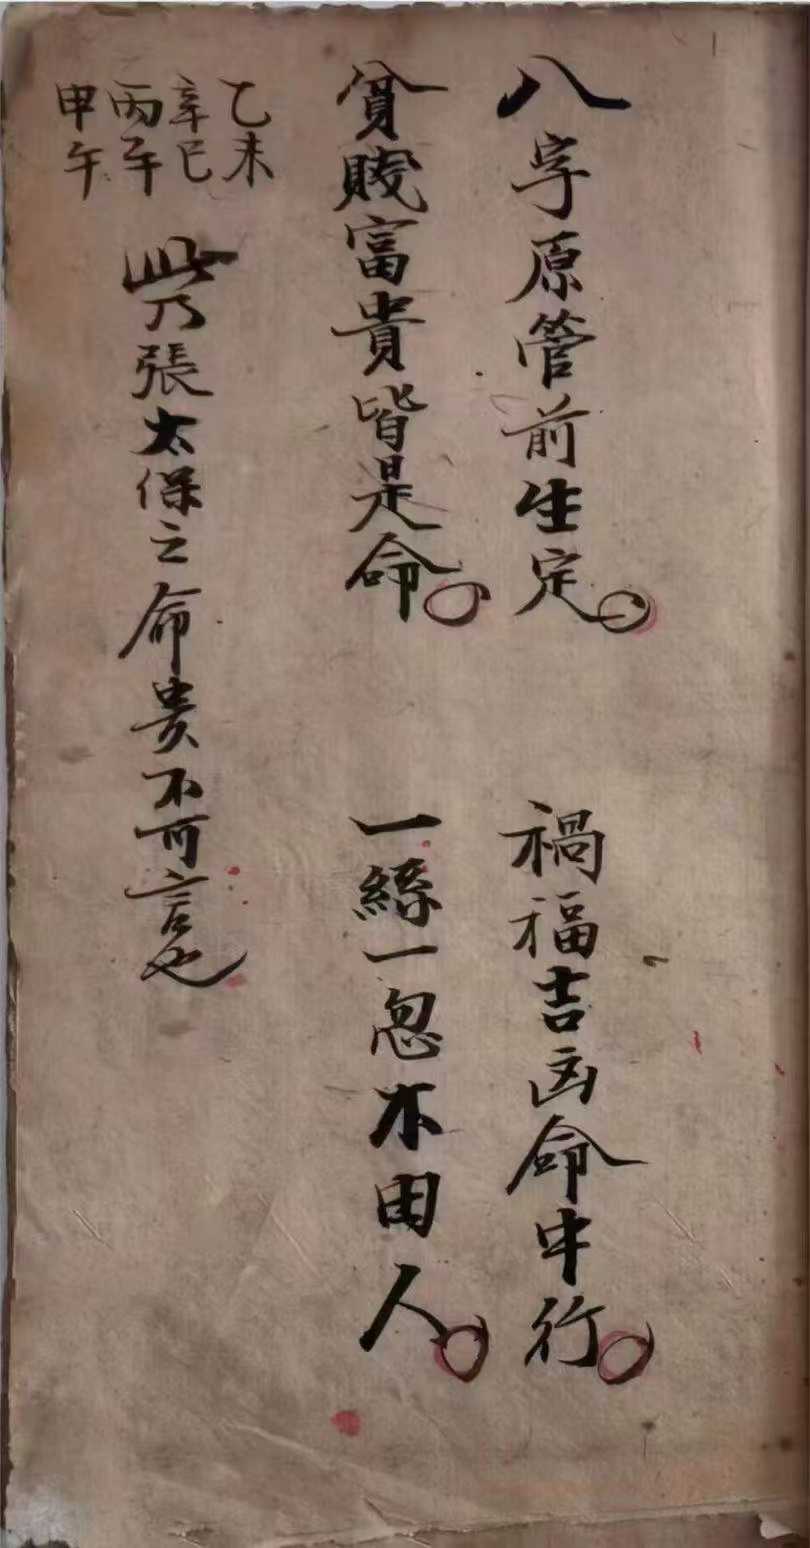 八字原管前生定。
禍福吉凶命中行。
貧賤富貴皆是命。
一絲一忽不由人。
乙未
辛巳
丙午
甲午
此乃張太保之命貴不可言也